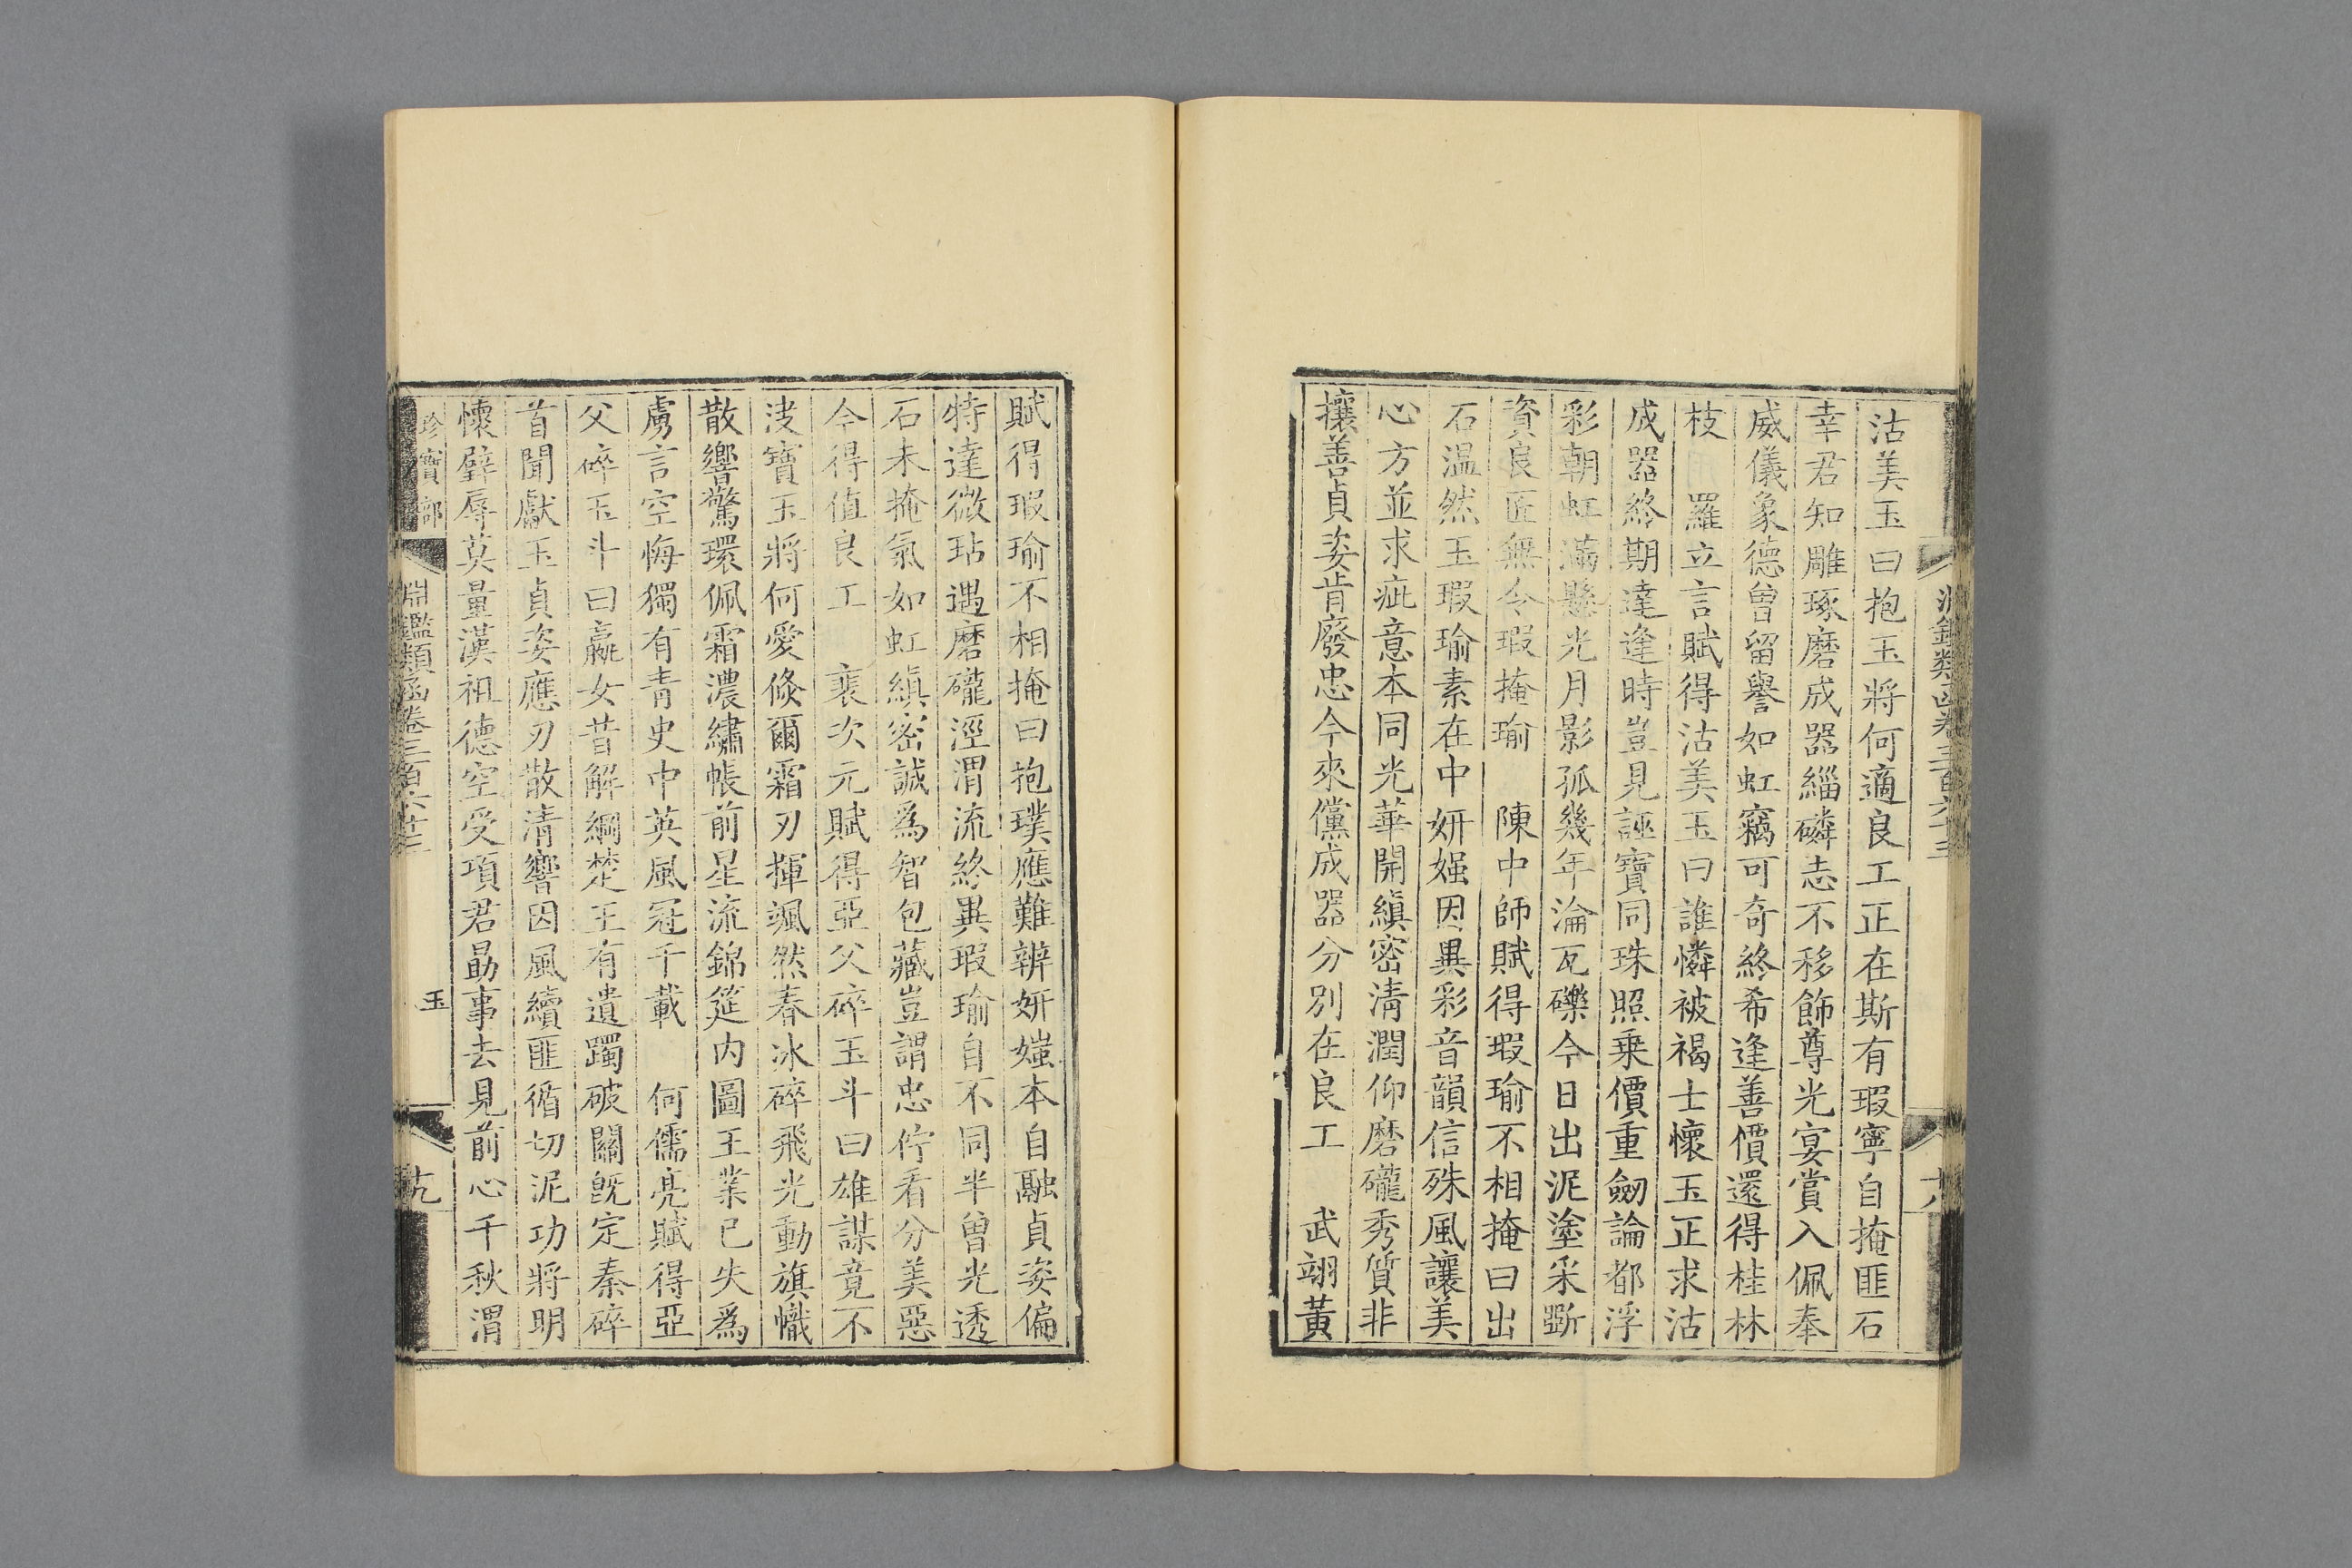 沽美玉曰抱玉將何適良工正在斯有瑕寧自掩匪石
幸君知雕琢磨成器緇磷志不移飾尊光宴賞入佩奉
威儀象德曾留譽如虹竊可奇終希逢善價還得桂林
枝 羅立言賦得沽美玉曰誰憐被褐士懷玉正求沽
成器終期達逢時豈見誣寶同珠照乗價重劒論都浮
彩朝虹滿懸光月影孤幾年淪瓦礫今日出泥塗采斵
資良匠無令瑕掩瑜 陳中師賦得瑕瑜不相掩曰出
石温然玉瑕瑜素在中妍媸因異彩音韻信殊風讓美
心方並求疵意本同光華開縝密清潤仰磨礲秀質非
攘善貞姿肯廢忠今來儻成器分別在良工 武翊黃
賦得瑕瑜不相掩曰抱璞應難辨妍媸本自融貞姿偏
特達微玷遇磨礲涇渭流終異瑕瑜自不同半曾光透
石未掩氣如虹縝密誠爲智包藏豈謂忠佇看分美惡
今得值良工 裴次元賦得亞父碎玉斗曰雄謀竟不
決寶玉將何愛倐爾霜刃揮颯然春冰碎飛光動旗幟
散響驚環佩霜濃繡帳前星流錦筵内圖王業已失爲
虜言空悔獨有青史中英風冠千載 何儒亮賦得亞
父碎玉斗曰嬴女昔解綱楚王有遺躅破關既定秦碎
首聞獻玉貞姿應刃散清響因風續匪循切泥功將明
懷璧辱莫量漢祖德空受項君勗事去見前心千秋渭
珍寶部 淵鑑類函卷三百六十三 玉 十九